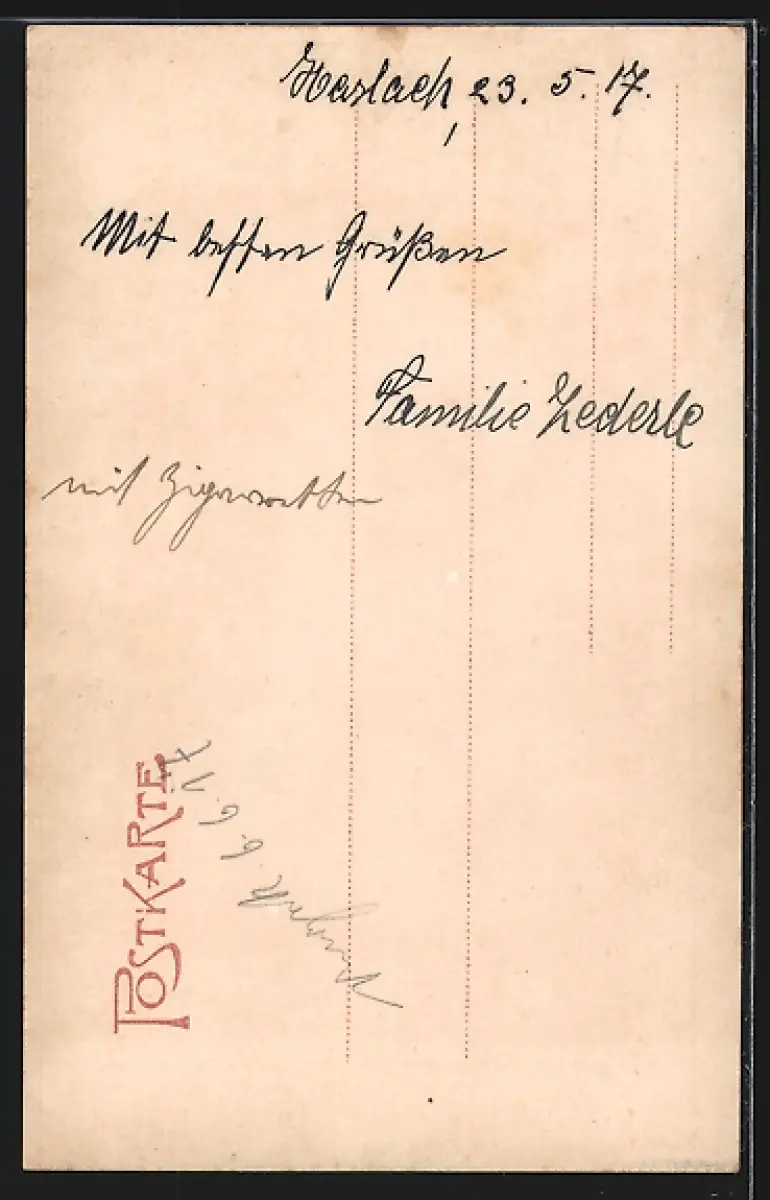 Haslach, 23. 5. 17.
Mit besten Grüßen
Familie Zederle
mit Zigaretten
POSTKARTE
6. 6. 17